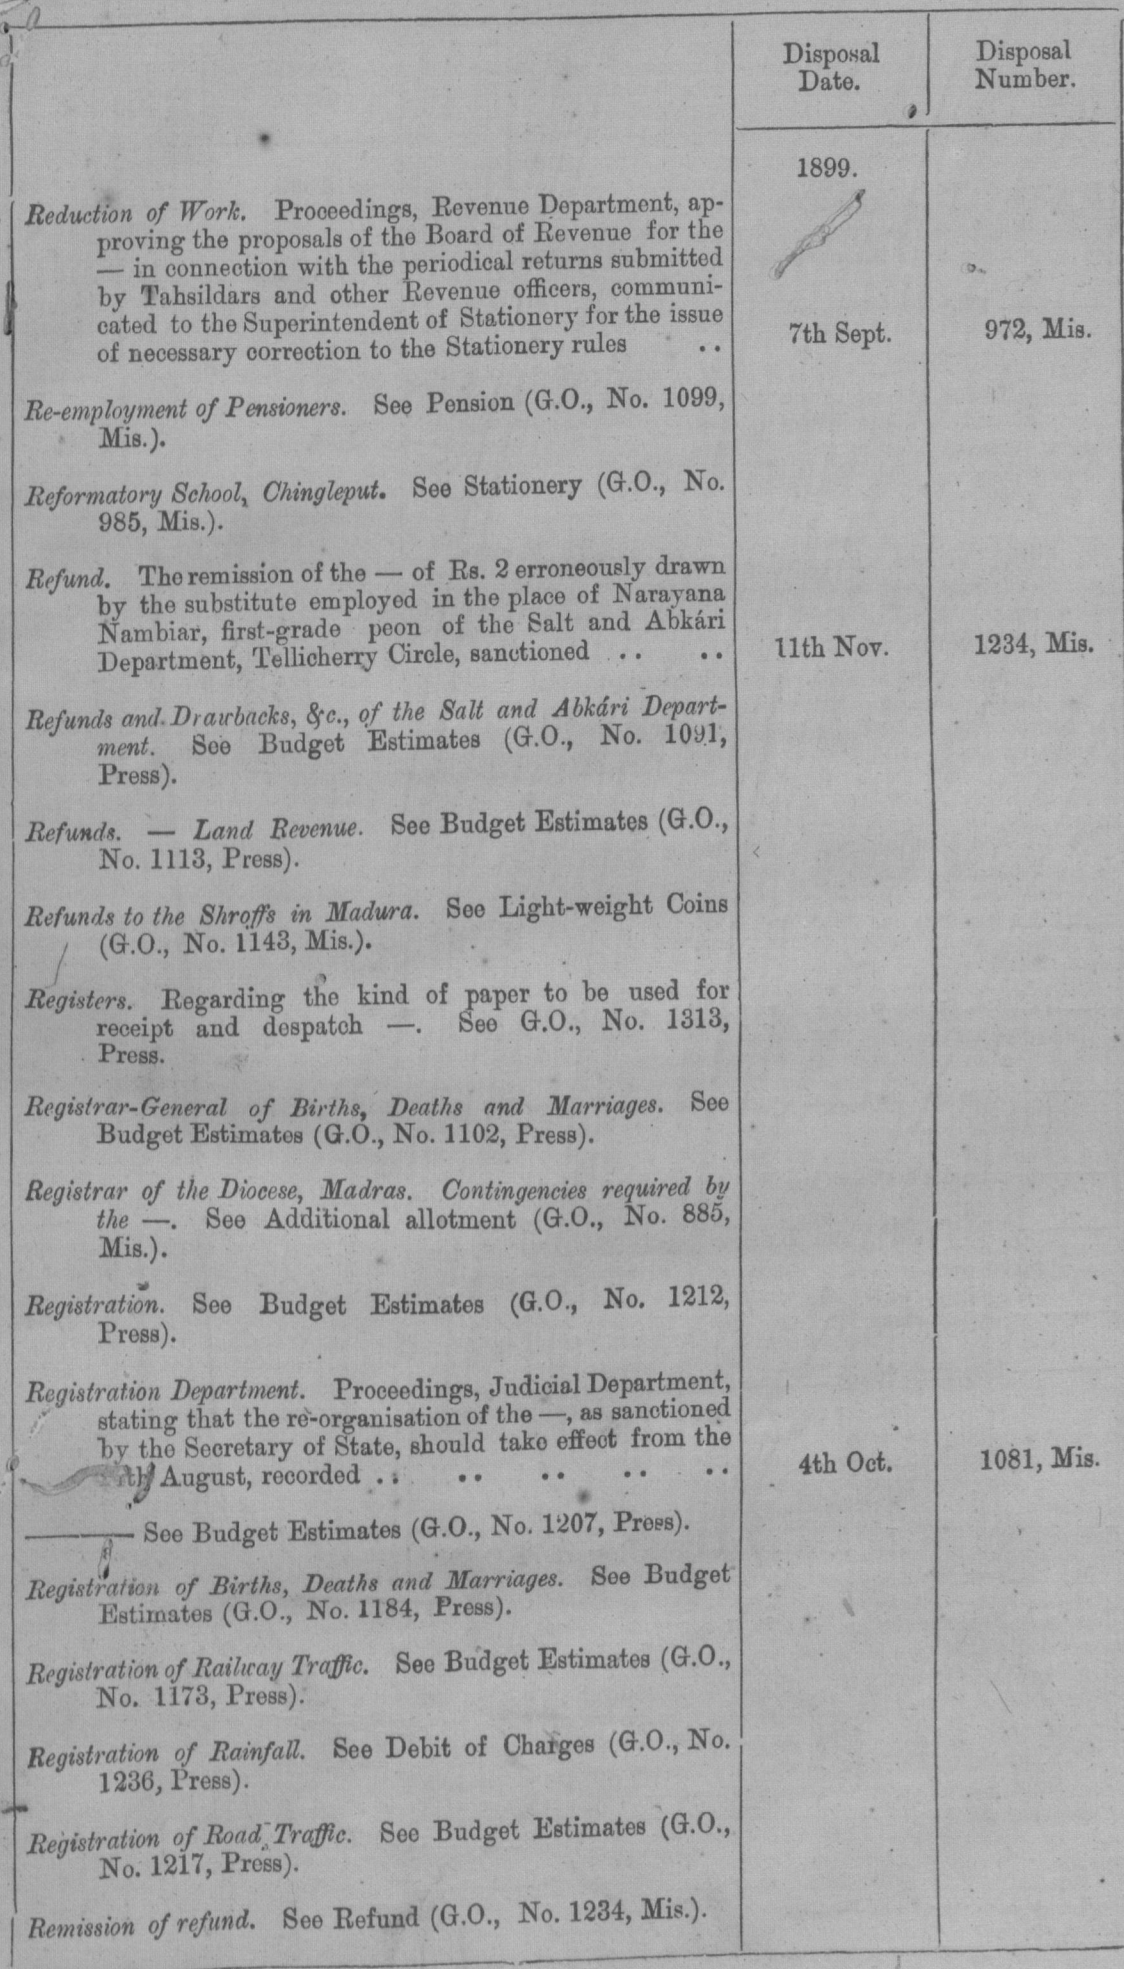 Disposal Date.
Disposal Number.
1899.
Reduction of Work. Proceedings, Revenue Department, ap-
proving the proposals of the Board of Revenue for the
— in connection with the periodical returns submitted
by Tahsildars and other Revenue officers, communi-
cated to the Superintendent of Stationery for the issue
of necessary correction to the Stationery rules .. 7th Sept. 972, Mis.
Re-employment of Pensioners. See Pension (G.O., No. 1099,
Mis.).
Reformatory School, Chingleput. See Stationery (G.O., No.
985, Mis.).
Refund. The remission of the — of Rs. 2 erroneously drawn
by the substitute employed in the place of Narayana
Nambiar, first-grade peon of the Salt and Abkári
Department, Tellicherry Circle, sanctioned .. .. 11th Nov. 1234, Mis.
Refunds and Drawbacks, &c., of the Salt and Abkári Depart-
ment. See Budget Estimates (G.O., No. 1091,
Press).
Refunds. — Land Revenue. See Budget Estimates (G.O.,
No. 1113, Press).
Refunds to the Shroffs in Madura. See Light-weight Coins
(G.O., No. 1143, Mis.).
Registers. Regarding the kind of paper to be used for
receipt and despatch —. See G.O., No. 1313,
Press.
Registrar-General of Births, Deaths and Marriages. See
Budget Estimates (G.O., No. 1102, Press).
Registrar of the Diocese, Madras. Contingencies required by
the —. See Additional allotment (G.O., No. 885,
Mis.).
Registration. See Budget Estimates (G.O., No. 1212,
Press).
Registration Department. Proceedings, Judicial Department,
stating that the re-organisation of the —, as sanctioned
by the Secretary of State, should take effect from the
August, recorded .. .. .. .. .. 4th Oct. 1081, Mis.
——— See Budget Estimates (G.O., No. 1207, Press).
Registration of Births, Deaths and Marriages. See Budget
Estimates (G.O., No. 1184, Press).
Registration of Railway Traffic. See Budget Estimates (G.O.,
No. 1173, Press).
Registration of Rainfall. See Debit of Charges (G.O., No.
1236, Press).
Registration of Road Traffic. See Budget Estimates (G.O.,
No. 1217, Press).
Remission of refund. See Refund (G.O., No. 1234, Mis.).